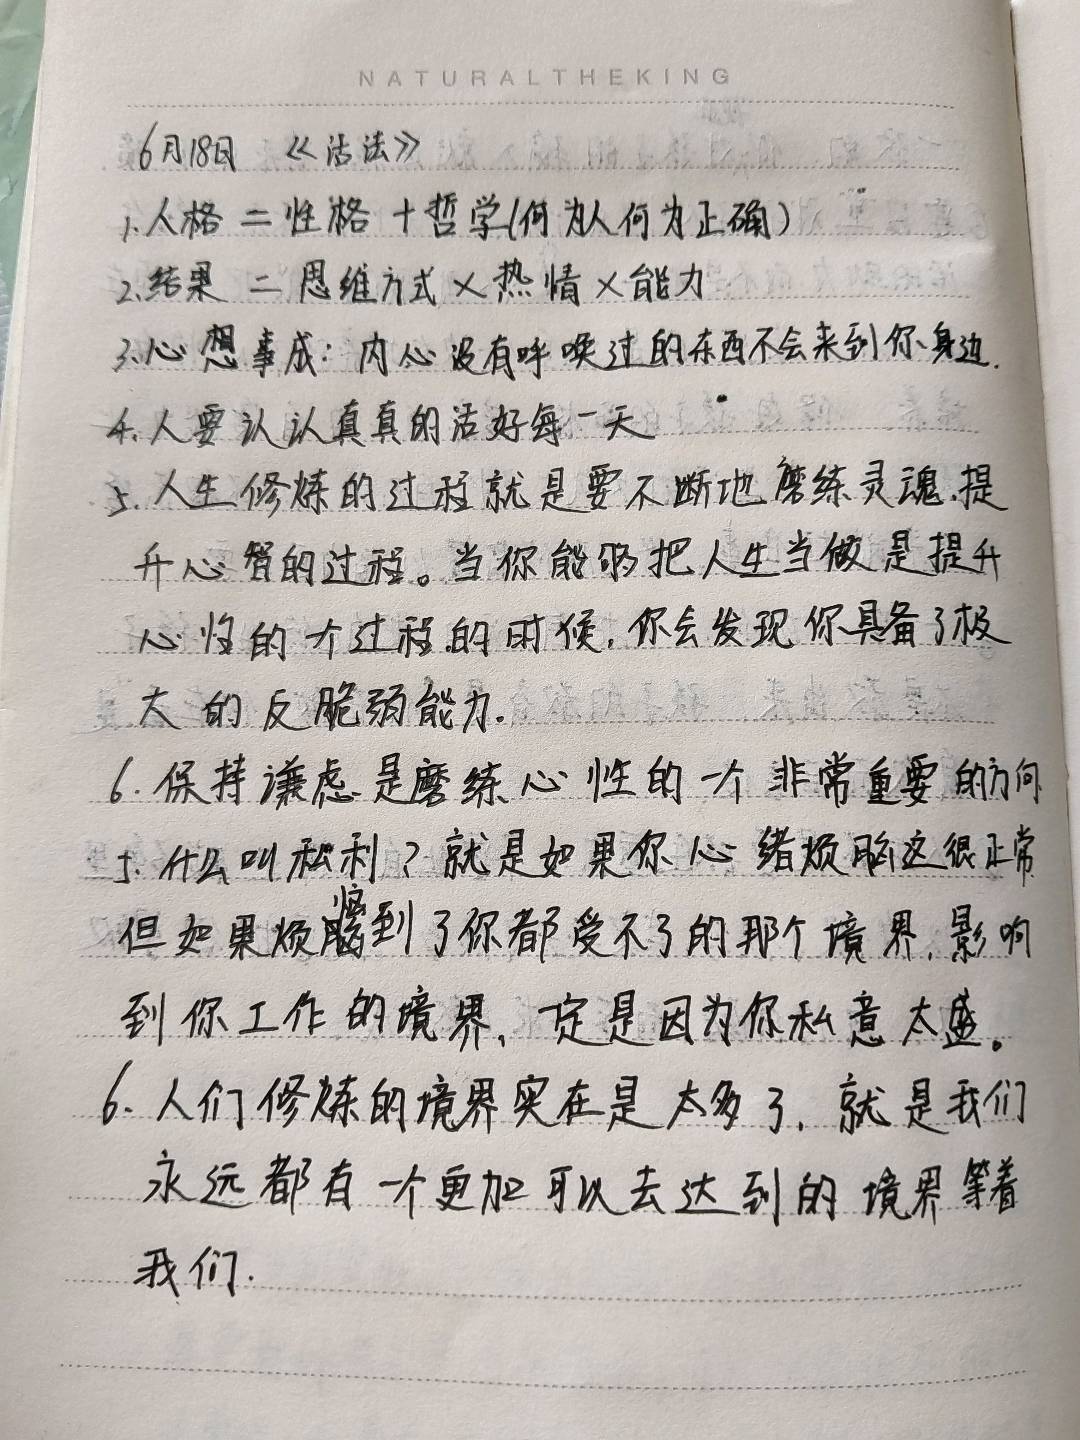 NATURALTHEKING
6月18日 《活法》
1.人格=性格+哲学(何为人何为正确)
2.结果=思维方式×热情×能力
3.心想事成：内心没有呼唤过的东西不会来到你身边.
4.人要认认真真的活好每一天
5.人生修炼的过程就是要不断地磨练灵魂.提
升心智的过程。当你能够把人生当做是提升
心性的一个过程的时候,你会发现你具备了极
大的反脆弱能力.
6.保持谦虑是磨练心性的一个非常重要的方向
5.什么叫私利?就是如果你心绪烦脑这很正常
但如果烦恼到了你都受不了的那个境界,影响
到你工作的境界,一定是因为你私意太盛。
6.人们修炼的境界实在是太多了,就是我们
永远都有一个更加可以去达到的境界等着
我们.